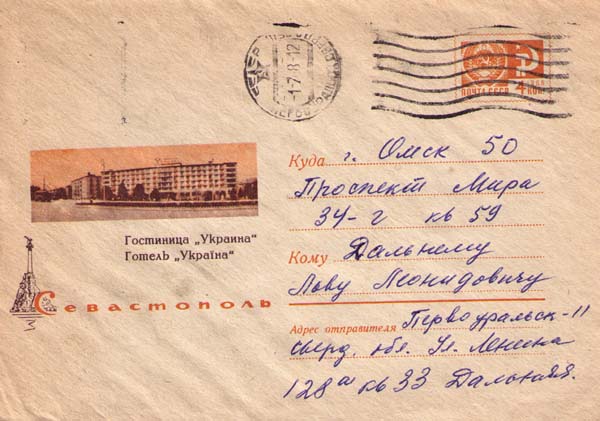 -1-7 8-12
ПОЧТА СССР
4
КОП
Гостиница „Украина“
Готель „Україна“
Севастополь
Куда г. Омск 50
Проспект Мира
34-г кв 59
Кому Дальнему
Льву Леонидовичу
Адрес отправителя Первоуральск-11
Сверд. обл. Ул. Ленина
128а кв 33 Дальняя.